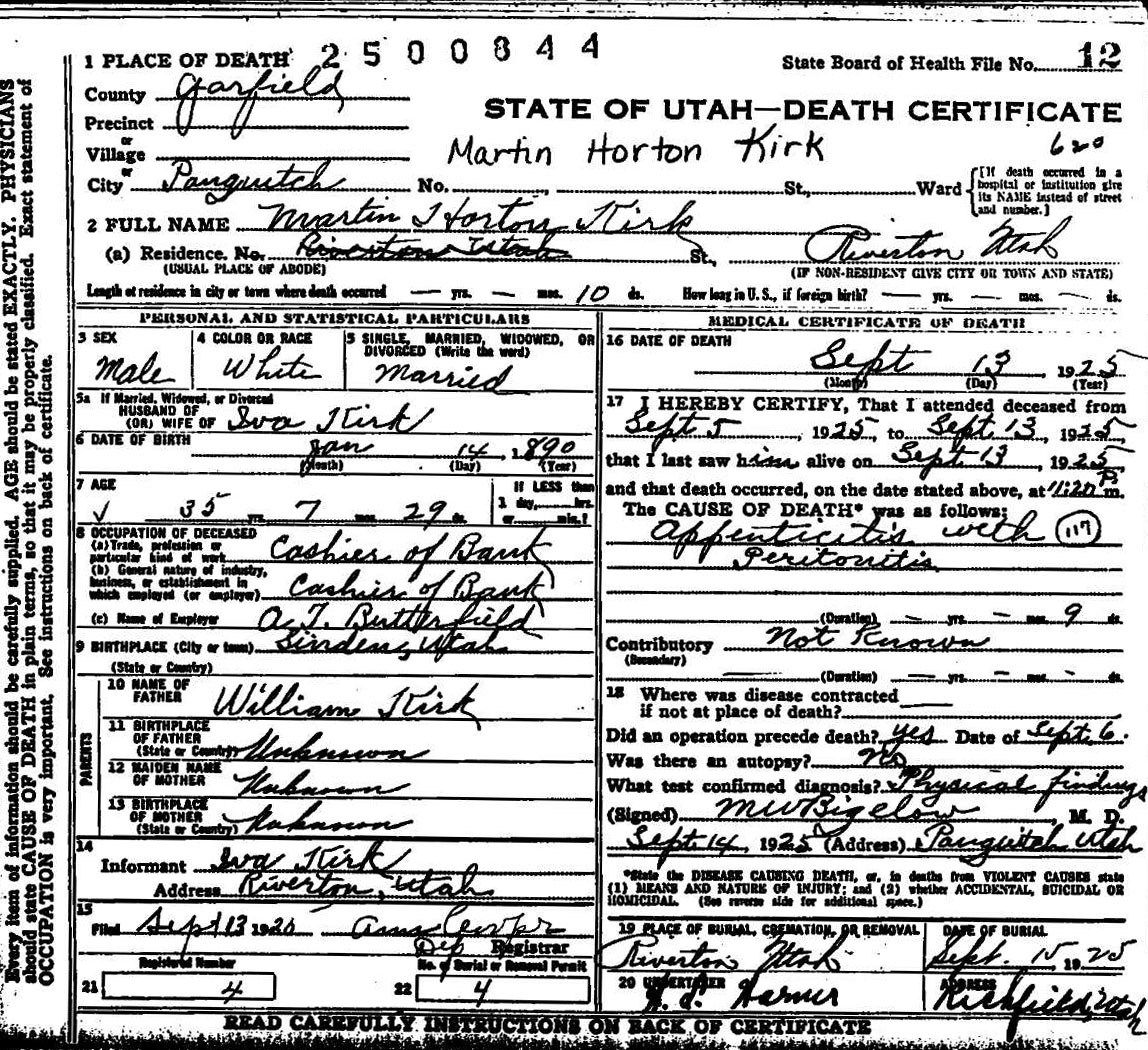 Every item of information should be carefully supplied. AGE should be stated EXACTLY. PHYSICIANS
should state CAUSE OF DEATH in plain terms, so that it may be properly classified. Exact statement of
OCCUPATION is very important. See instructions on back of certificate.
1 PLACE OF DEATH 2500844
State Board of Health File No. 12
County Garfield
STATE OF UTAH—DEATH CERTIFICATE
Precinct
or
Village
Martin Horton Kirk 620
or
City Panguitch No. St., Ward
[If death occurred in a hospital or institution give its NAME instead of street and number.]
2 FULL NAME Martin Horton Kirk
(a) Residence. No. Riverton Utah St., Riverton Utah
(USUAL PLACE OF ABODE) (IF NON-RESIDENT GIVE CITY OR TOWN AND STATE)
Length of residence in city or town where death occurred — yrs. — mos. 10 ds. How long in U. S., if foreign birth? — yrs. — mos. — ds.
PERSONAL AND STATISTICAL PARTICULARS
3 SEX
Male
4 COLOR OR RACE
White
5 SINGLE, MARRIED, WIDOWED, OR
DIVORCED (Write the word)
Married
5a If Married, Widowed, or Divorced
HUSBAND OF
(OR) WIFE OF Iva Kirk
6 DATE OF BIRTH Jan 14 1890
(Month) (Day) (Year)
7 AGE
35 yrs. 7 mos. 29 ds.
If LESS than
1 day, hrs.
or min.?
8 OCCUPATION OF DECEASED
(a) Trade, profession or
particular kind of work Cashier of Bank
(b) General nature of industry,
business, or establishment in
which employed (or employer) Cashier of Bank
(c) Name of Employer A. T. Butterfield
9 BIRTHPLACE (City or town) Utah
(State or Country)
PARENTS
10 NAME OF
FATHER William Kirk
11 BIRTHPLACE
OF FATHER
(State or Country) Unknown
12 MAIDEN NAME
OF MOTHER Unknown
13 BIRTHPLACE
OF MOTHER
(State or Country) Unknown
14
Informant Iva Kirk
Address Riverton, Utah
15
Filed Sept 13 1925
Dep Registrar
Registered Number
No. of Burial or Removal Permit
21 4
22 4
MEDICAL CERTIFICATE OF DEATH
16 DATE OF DEATH
Sept 13 1925
(Month) (Day) (Year)
17 I HEREBY CERTIFY, That I attended deceased from
Sept 5, 1925, to Sept. 13, 1925,
that I last saw him alive on Sept 13, 1925
and that death occurred, on the date stated above, at 11:20 P m.
The CAUSE OF DEATH* was as follows:
Appenticitis with 117
Peritonitis
(Duration) — yrs. — mos. 9 ds.
Contributory Not Known
(Secondary)
(Duration) — yrs. — mos. - ds.
18 Where was disease contracted
if not at place of death?
Did an operation precede death? yes Date of Sept. 6.
Was there an autopsy? No
What test confirmed diagnosis? Physical findings
(Signed) M W Bigelow M. D.
Sept 14, 1925 (Address) Panguitch Utah
*State the DISEASE CAUSING DEATH, or, in deaths from VIOLENT CAUSES state
(1) MEANS AND NATURE OF INJURY; and (2) whether ACCIDENTAL, SUICIDAL OR
HOMICIDAL. (See reverse side for additional space.)
19 PLACE OF BURIAL, CREMATION, OR REMOVAL
Riverton Utah
DATE OF BURIAL
Sept. 15, 1925
20 UNDERTAKER
ADDRESS
Richfield, Utah
READ CAREFULLY INSTRUCTIONS ON BACK OF CERTIFICATE